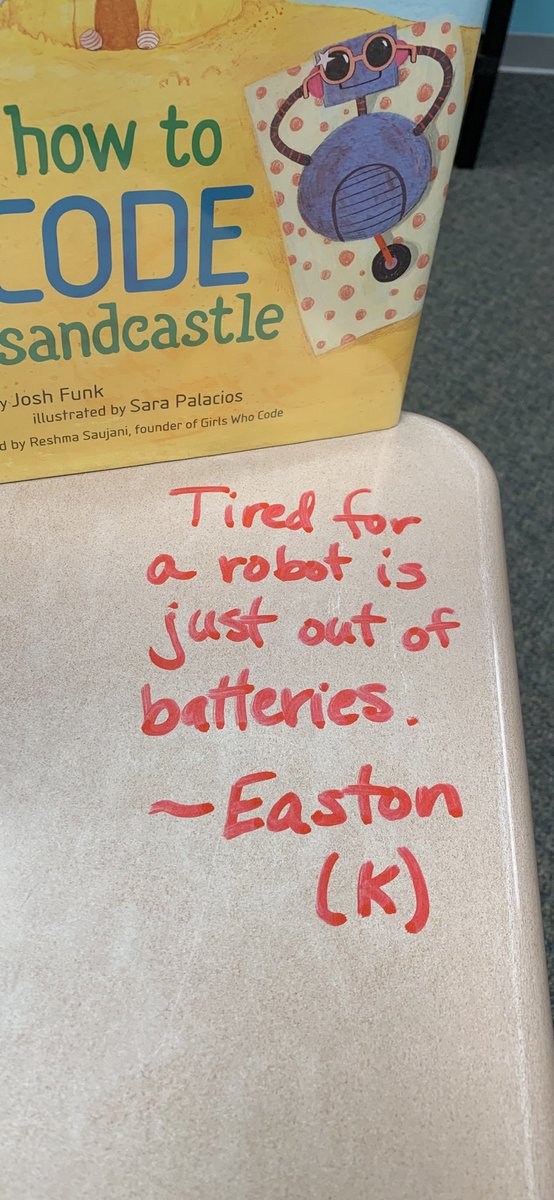 how to
CODE
sandcastle
y Josh Funk
illustrated by Sara Palacios
d by Reshma Saujani, founder of Girls Who Code
Tired for
a robot is
just out of
batteries.
~Easton
(K)